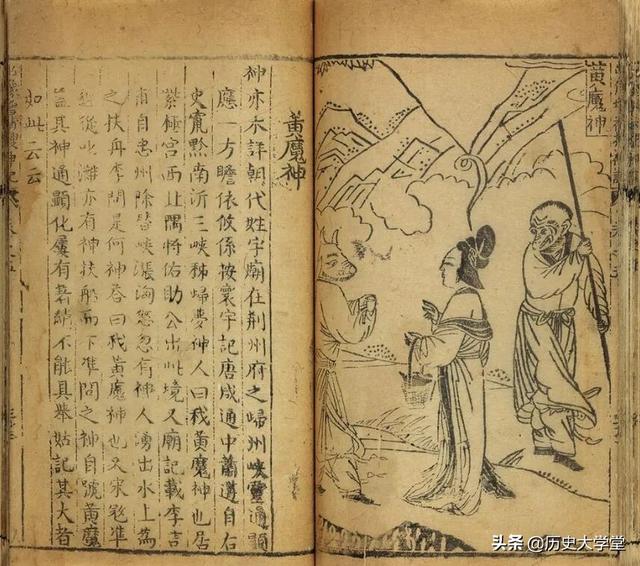 黃魔神
黃魔神
神亦不詳朝代姓字廟在荆州府之歸州峽靈通顯
應一方瞻依攸係按寰宇記唐咸通中蕭遘自右
史竄黔南沂三峽秭歸夢神人曰我黃魔神也居
紫極宮西北隅將佑助公出此境又廟記載李吉
甫自忠州除替峽漲洶怒忽有神人湧出水上爲
之扶再李問是何神答曰我黃魔神也又宋寇準
從此灘亦有神扶船而下準問之神自號黃魔
葢其神通顯化屢有著績不能具舉姑記其大者
如此云云
头条 @历史大学堂